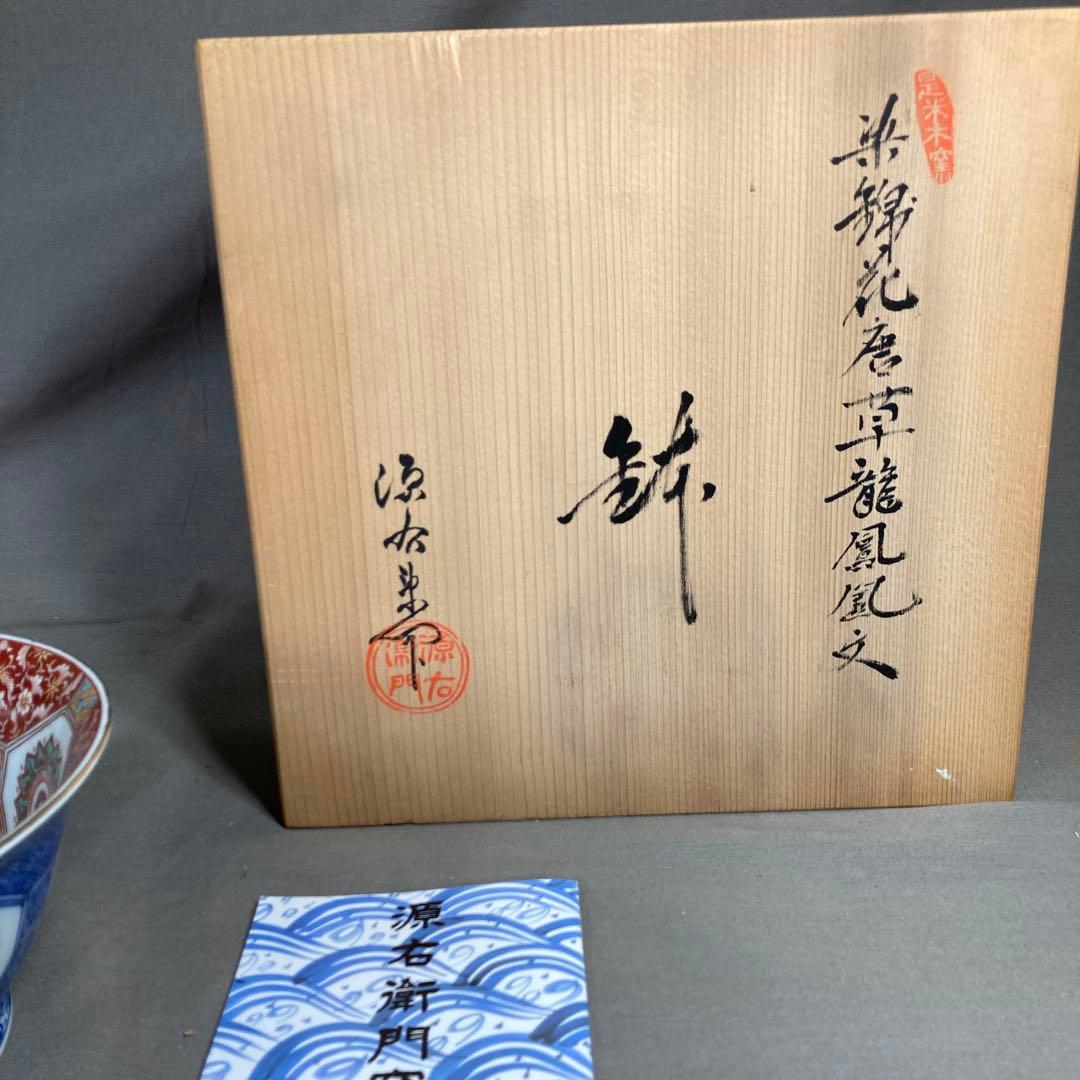 染錦花唐草龍鳳凰文
鉢
源右衛門
源右衛門
源右衛門窯